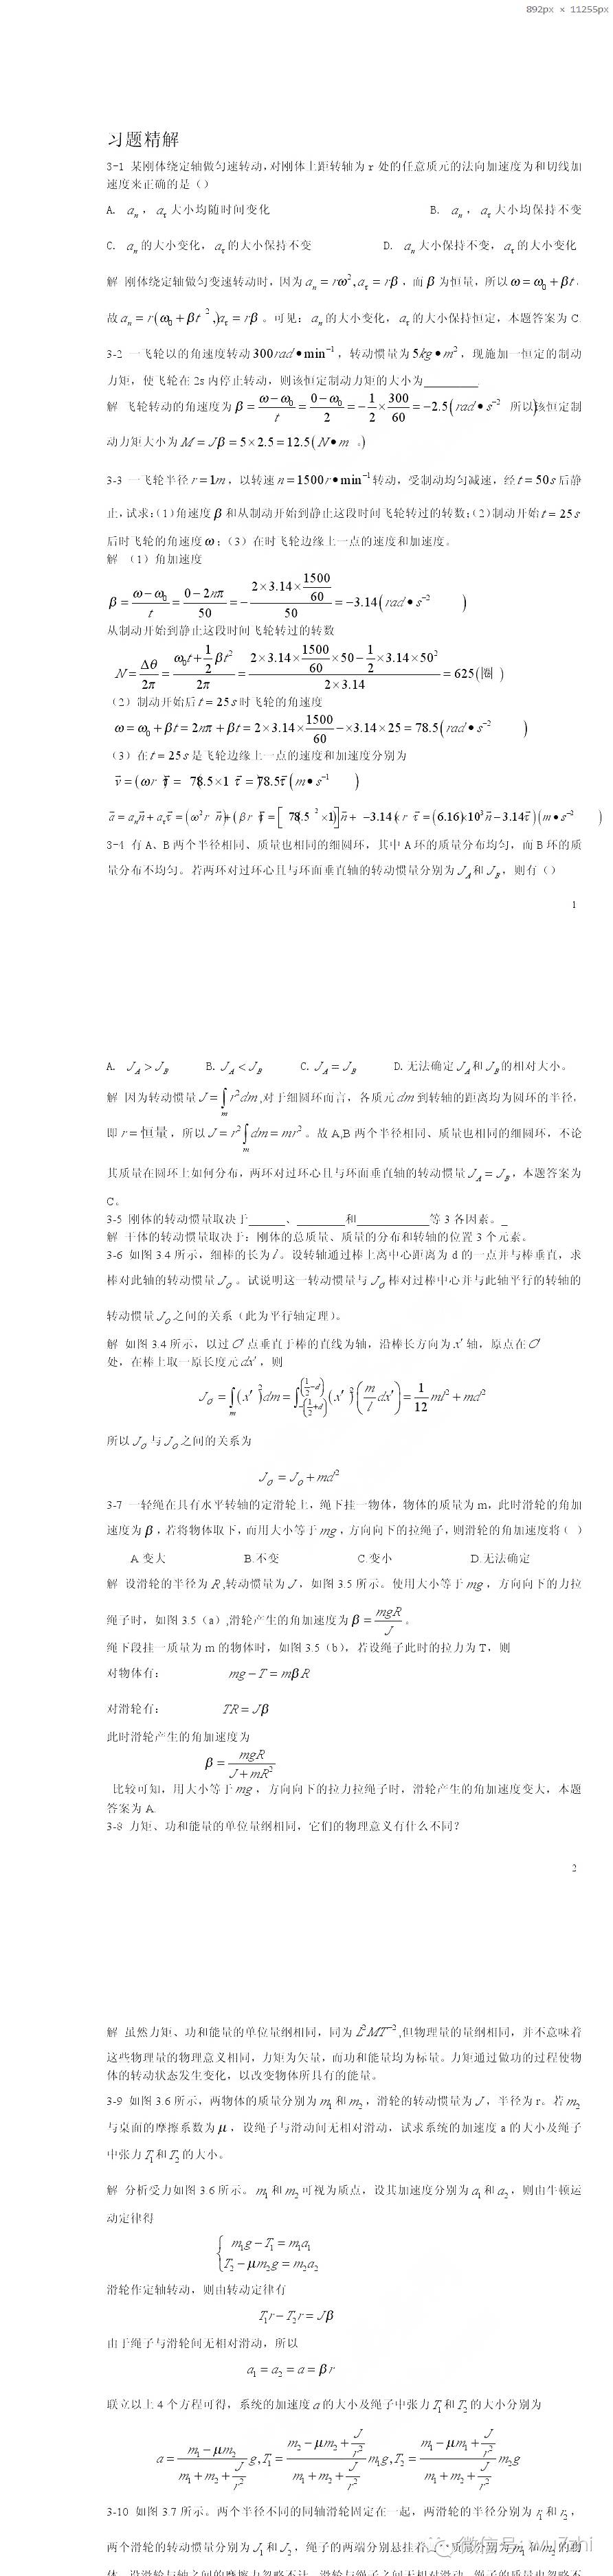 892px × 11255px
习题精解
3-1 某刚体绕定轴做匀速转动,对刚体上距转轴为 r 处的任意质元的法向加速度为和切线加
速度来正确的是()
A. aₙ，a_τ 大小均随时间变化 B. aₙ，a_τ 大小均保持不变
C. aₙ 的大小变化，a_τ 的大小保持不变 D. aₙ 大小保持不变，a_τ 的大小变化
解 刚体绕定轴做匀变速转动时，因为 aₙ = rω², a_τ = rβ，而 β 为恒量，所以 ω = ω₀ + βt，
故 aₙ = r(ω₀ + βt)², a_τ = rβ。可见：aₙ 的大小变化，a_τ 的大小保持恒定，本题答案为 C.
3-2 一飞轮以的角速度转动 300rad•min⁻¹，转动惯量为 5kg•m²，现施加一恒定的制动
力矩，使飞轮在 2s 内停止转动，则该恒定制动力矩的大小为________
解 飞轮转动的角速度为 β = (ω−ω₀)/t = (0−ω₀)/2 = −1/2 × 300/60 = −2.5(rad•s⁻²) 所以该恒定制
动力矩大小为 M = Jβ = 5×2.5 = 12.5(N•m)。
3-3 一飞轮半径 r = 1m，以转速 n = 1500r•min⁻¹ 转动，受制动均匀减速，经 t = 50s 后静
止,试求:(1)角速度 β 和从制动开始到静止这段时间飞轮转过的转数;(2)制动开始 t = 25s
后时飞轮的角速度 ω；(3）在时飞轮边缘上一点的速度和加速度。
解 （1）角加速度
β = (ω−ω₀)/t = (0−2nπ)/50 = −(2×3.14×1500/60)/50 = −3.14(rad•s⁻²)
从制动开始到静止这段时间飞轮转过的转数
N = Δθ/2π = (ω₀t + ½βt²)/2π = (2×3.14×1500/60×50 − ½×3.14×50²)/(2×3.14) = 625(圈)
（2）制动开始后 t = 25s 时飞轮的角速度
ω = ω₀ + βt = 2nπ + βt = 2×3.14×1500/60 − ×3.14×25 = 78.5(rad•s⁻²)
（3）在 t = 25s 是飞轮边缘上一点的速度和加速度分别为
v⃗ = (ωr)τ⃗ = 78.5×1 τ⃗ = 78.5τ⃗(m•s⁻¹)
a⃗ = aₙn⃗ + a_ττ⃗ = (ω²r)n⃗ + (βr)τ⃗ = [(78.5)²×1]n⃗ + (−3.14×r)τ⃗ = (6.16×10³n⃗ − 3.14τ⃗)(m•s⁻²)
3-4 有 A、B 两个半径相同、质量也相同的细圆环，其中 A 环的质量分布均匀，而 B 环的质
量分布不均匀。若两环对过环心且与环面垂直轴的转动惯量分别为 J_A 和 J_B，则有()
1
A. J_A > J_B B. J_A < J_B C. J_A = J_B D. 无法确定 J_A 和 J_B 的相对大小。
解 因为转动惯量 J = ∫ₘ r²dm,对于细圆环而言，各质元 dm 到转轴的距离均为圆环的半径，
即 r = 恒量，所以 J = r²∫ₘ dm = mr²。故 A,B 两个半径相同、质量也相同的细圆环，不论
其质量在圆环上如何分布，两环对过环心且与环面垂直轴的转动惯量 J_A = J_B，本题答案为
C。
3-5 刚体的转动惯量取决于______、________和____________等 3 各因素。_
解 干体的转动惯量取决于：刚体的总质量、质量的分布和转轴的位置 3 个元素。
3-6 如图 3.4 所示，细棒的长为 l。设转轴通过棒上离中心距离为 d 的一点并与棒垂直，求
棒对此轴的转动惯量 J_O′。试说明这一转动惯量与 J_O′ 棒对过棒中心并与此轴平行的转轴的
转动惯量 J_O 之间的关系（此为平行轴定理）。
解 如图 3.4 所示，以过 O′ 点垂直于棒的直线为轴，沿棒长方向为 x′ 轴，原点在 O′
处，在棒上取一原长度元 dx′，则
J_O′ = ∫ₘ (x′)²dm = ∫_{−(1/2+d)}^{(1/2−d)} (x′)²(m/l dx′) = 1/12 ml² + md²
所以 J_O′ 与 J_O 之间的关系为
J_O′ = J_O + md²
3-7 一轻绳在具有水平转轴的定滑轮上，绳下挂一物体，物体的质量为 m，此时滑轮的角加
速度为 β，若将物体取下，而用大小等于 mg，方向向下的拉绳子，则滑轮的角加速度将（ ）
A 变大 B.不变 C.变小 D.无法确定
解 设滑轮的半径为 R,转动惯量为 J，如图 3.5 所示。使用大小等于 mg，方向向下的力拉
绳子时，如图 3.5（a）,滑轮产生的角加速度为 β = mgR/J。
绳下段挂一质量为 m 的物体时，如图 3.5（b），若设绳子此时的拉力为 T，则
对物体有： mg − T = mβR
对滑轮有： TR = Jβ
此时滑轮产生的角加速度为
β = mgR/(J + mR²)
比较可知，用大小等于 mg，方向向下的拉力拉绳子时，滑轮产生的角加速度变大，本题
答案为 A.
3-8 力矩、功和能量的单位量纲相同，它们的物理意义有什么不同？
2
解 虽然力矩、功和能量的单位量纲相同，同为 L²MT⁻²,但物理量的量纲相同，并不意味着
这些物理量的物理意义相同，力矩为矢量，而功和能量均为标量。力矩通过做功的过程使物
体的转动状态发生变化，以改变物体所具有的能量。
3-9 如图 3.6 所示，两物体的质量分别为 m₁ 和 m₂，滑轮的转动惯量为 J，半径为 r。若 m₂
与桌面的摩擦系数为 μ，设绳子与滑动间无相对滑动，试求系统的加速度 a 的大小及绳子
中张力 T₁ 和 T₂ 的大小。
解 分析受力如图 3.6 所示。m₁ 和 m₂ 可视为质点，设其加速度分别为 a₁ 和 a₂，则由牛顿运
动定律得
m₁g − T₁ = m₁a₁
T₂ − μm₂g = m₂a₂
滑轮作定轴转动，则由转动定律有
T₁r − T₂r = Jβ
由于绳子与滑轮间无相对滑动，所以
a₁ = a₂ = a = βr
联立以上 4 个方程可得，系统的加速度 a 的大小及绳子中张力 T₁ 和 T₂ 的大小分别为
a = (m₁ − μm₂)/(m₁ + m₂ + J/r²) g, T₁ = (m₂ − μm₂ + J/r²)/(m₁ + m₂ + J/r²) m₁g, T₂ = (m₁ − μm₁ + J/r²)/(m₁ + m₂ + J/r²) m₂g
3-10 如图 3.7 所示。两个半径不同的同轴滑轮固定在一起，两滑轮的半径分别为 r₁ 和 r₂，
两个滑轮的转动惯量分别为 J₁ 和 J₂，绳子的两端分别悬挂着 质 分别为 m₁ 和 m₂ 的物
微信号: wu7zhi
体，设滑轮与轴之间的摩擦力忽略不计，滑轮与绳子之间无相对滑动，绳子的质量也忽略不